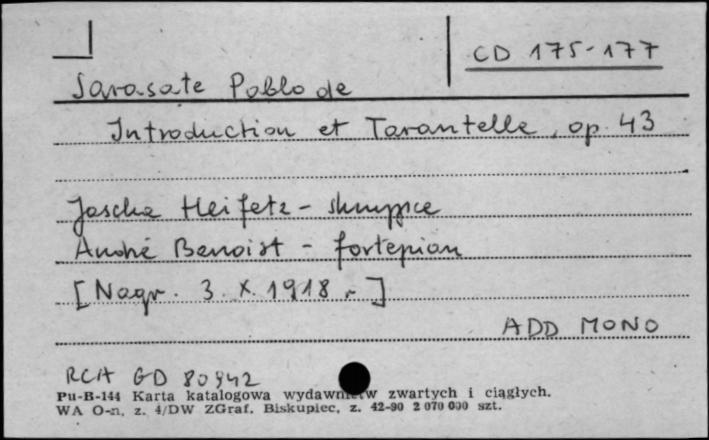 CD 175-177
Sarasate Pablo de
Introduction et Tarantelle, op. 43
Jascha Heifetz - skrzypce
André Benoist - fortepian
[Nagr. 3. X. 1918 r.]
ADD MONO
RCA GD 80942
Pu-B-144 Karta katalogowa wydawnictw zwartych i ciągłych.
WA O-n, z. 4/DW ZGraf. Biskupiec, z. 42-90 2 070 000 szt.